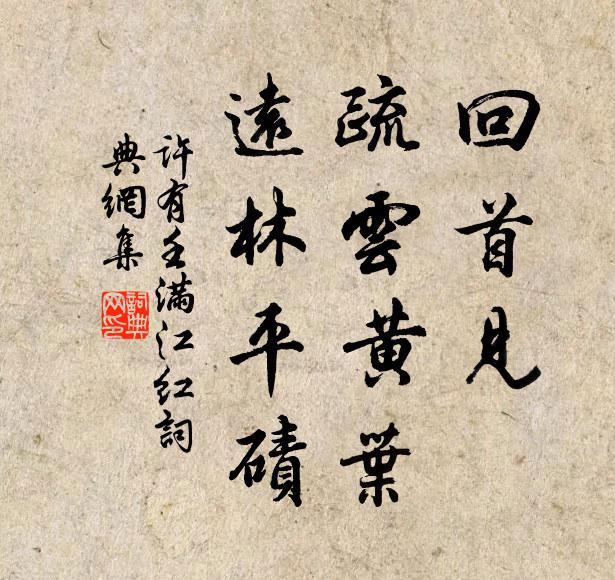 回首見
疏雲黃葉
遠林平磧
許有壬滿江紅詞
典網集
詞典網印